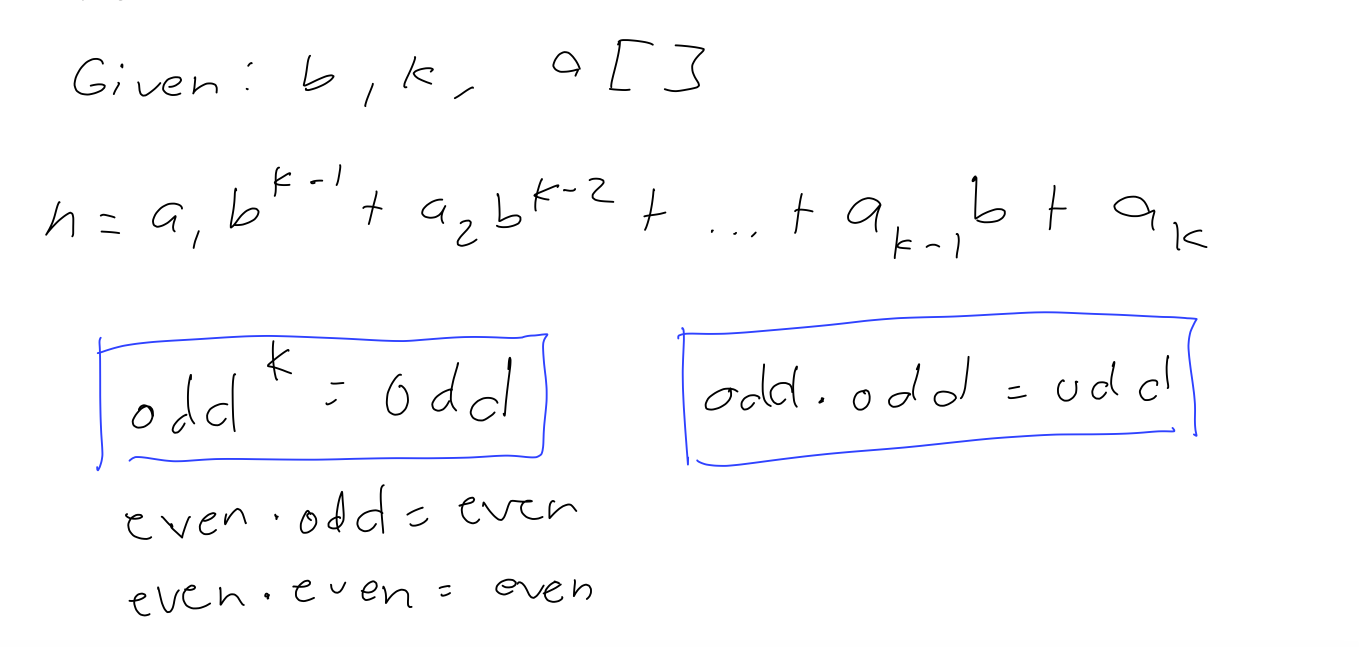 Given: b, k, a[]
n = a₁b^(k-1) + a₂b^(k-2) + ... + a_(k-1)b + a_k
odd^k = odd
odd · odd = odd
even · odd = even
even · even = even